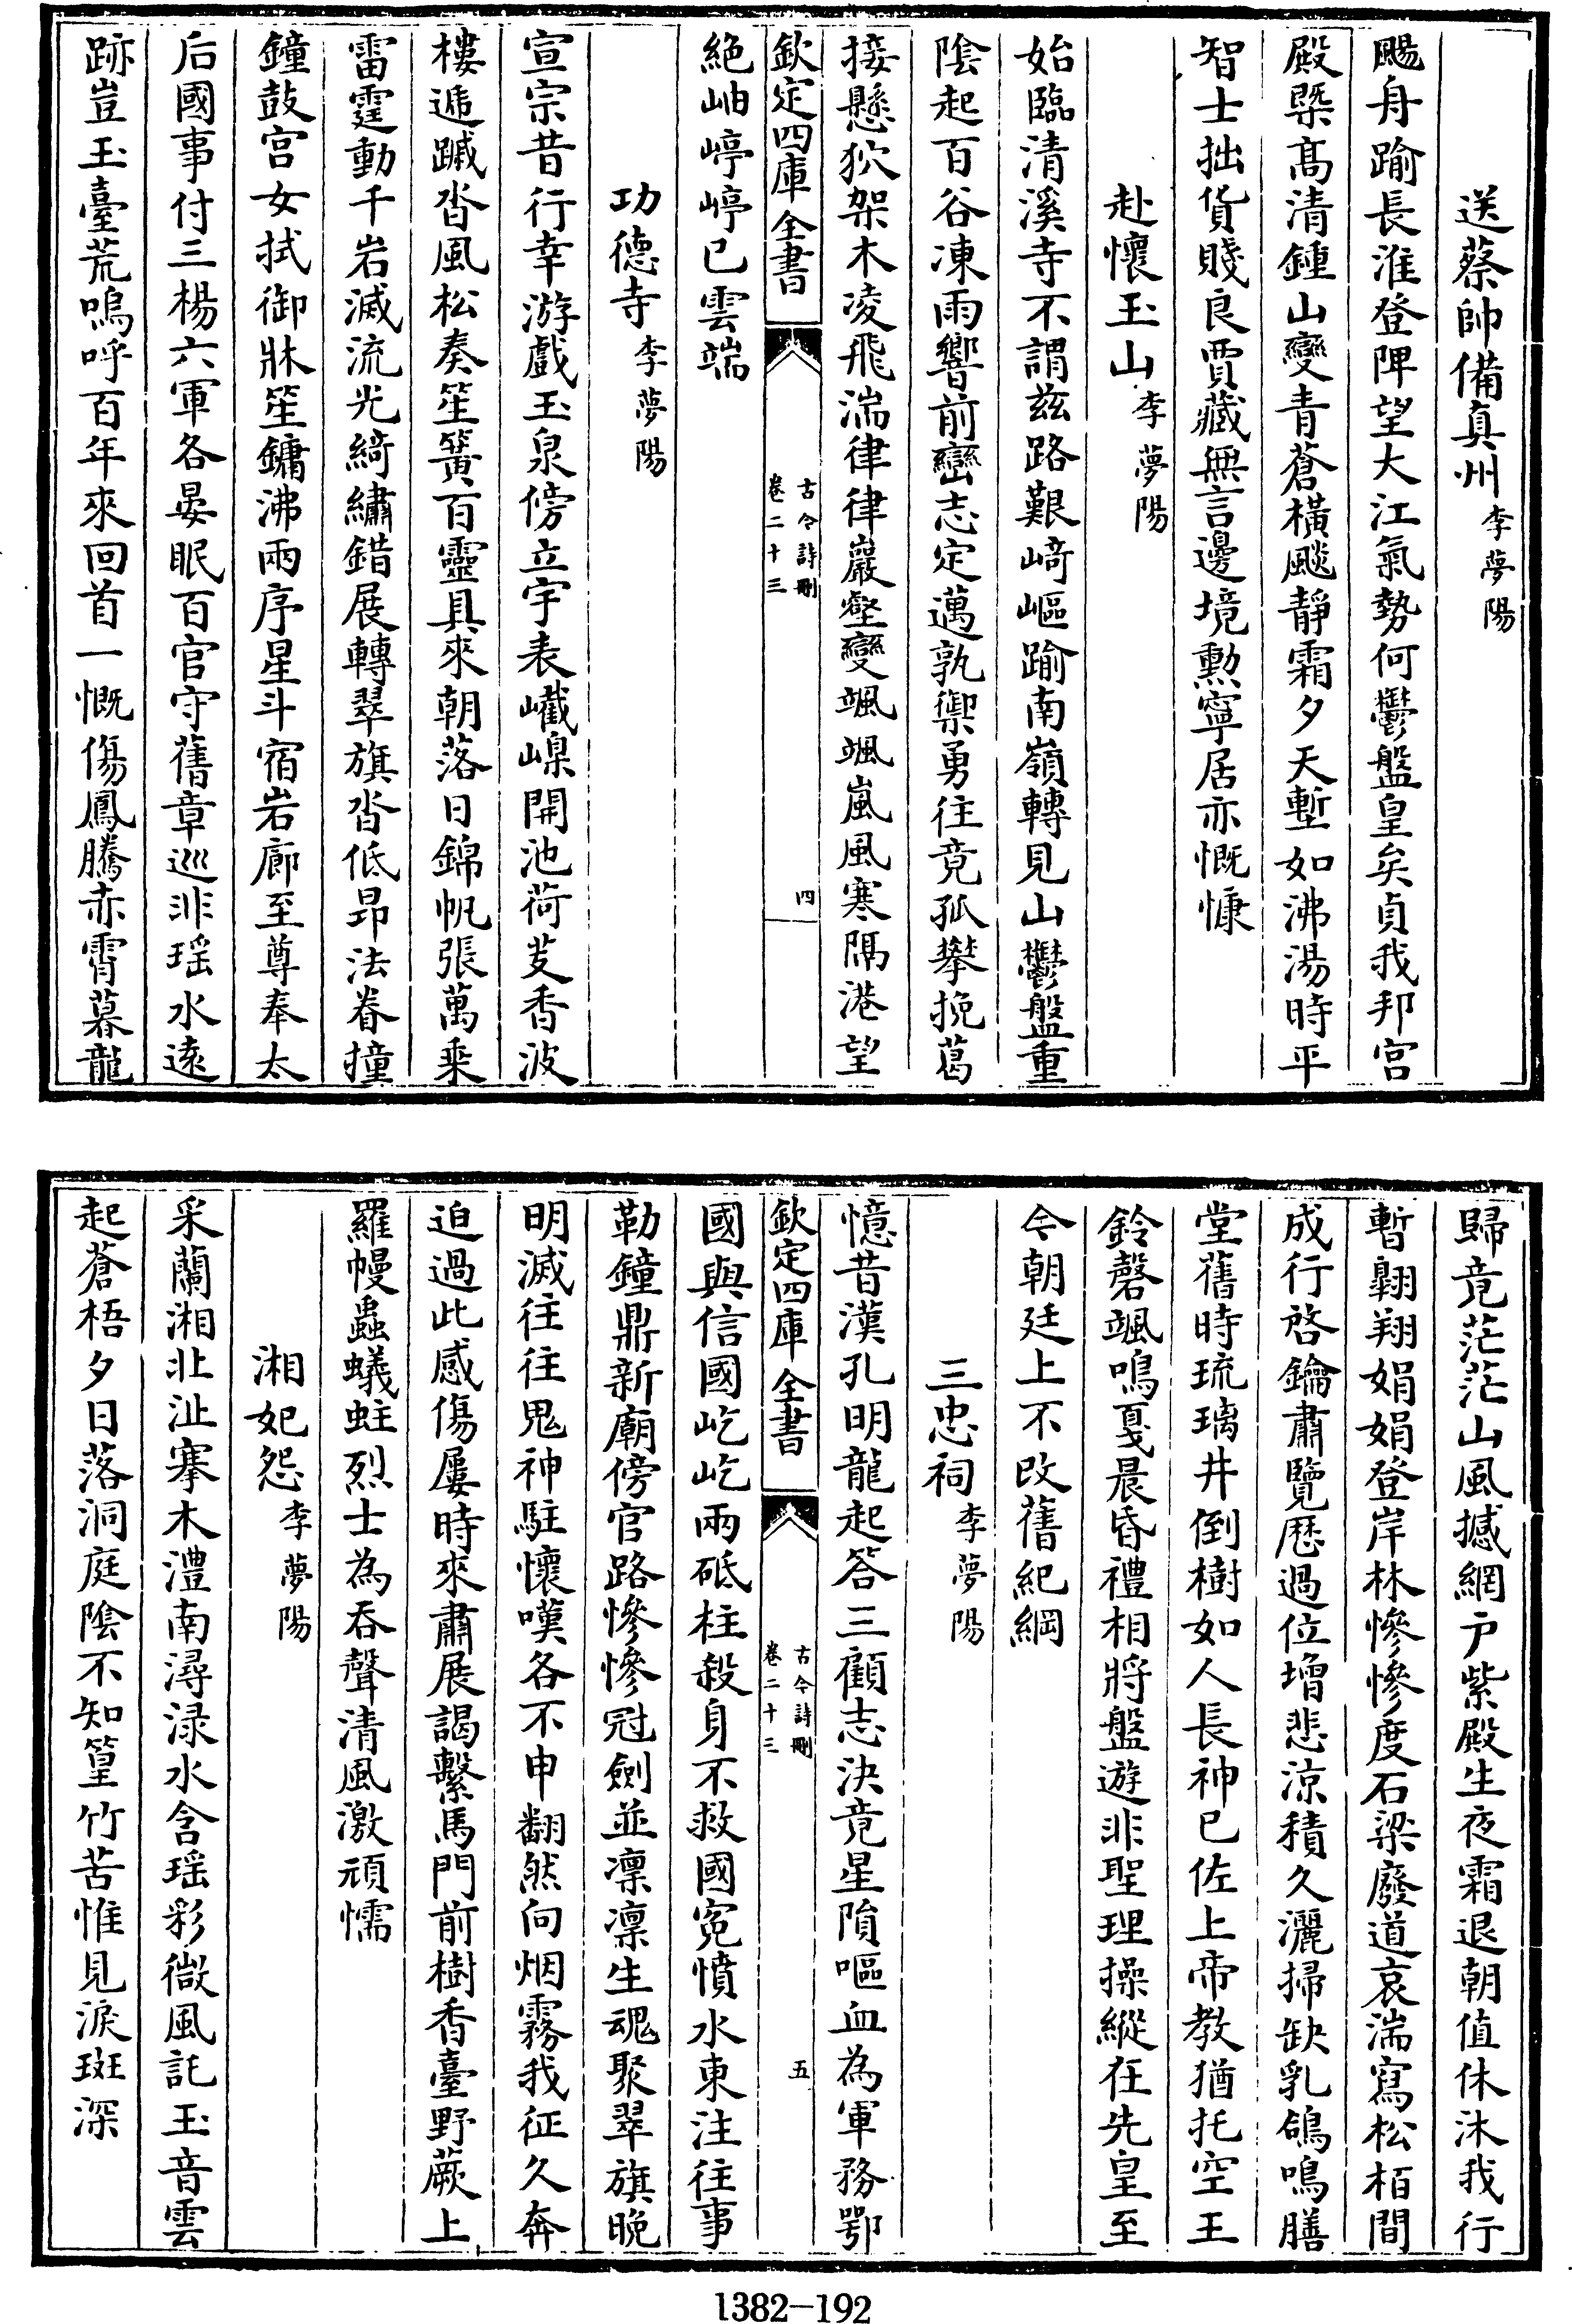 送蔡帥備真州李夢陽
颺舟踰長淮登陴望大江氣勢何鬱盤皇矣貞我邦宫
殿槩髙清鍾山變青蒼横颷靜霜夕天塹如沸湯時平
智士拙貨賤良賈藏無言邊境勲寧居亦慨慷
赴懷玉山李夢陽
始臨清溪寺不謂兹路艱﨑嶇踰南嶺轉見山鬱盤重
隂起百谷凍雨響前巒志定邁孰禦勇往竟孤攀挽葛
接懸狖架木凌飛湍律律巖壑變颯颯嵐風寒隔港望
欽定四庫全書
古今詩刪
卷二十三
四
絶岫崞崞已雲端
功德寺李夢陽
宣宗昔行幸游戲玉泉傍立宇表嶻嵲開池荷芰香波
樓遞蹴沓風松奏笙簧百靈具來朝落日錦帆張萬乗
雷霆動千岩滅流光綺繡錯展轉翠旗沓低昂法眷撞
鐘鼓宫女拭御牀笙鏞沸兩序星斗宿岩廊至尊奉太
后國事付三楊六軍各晏眠百官守舊章巡非瑶水逺
跡豈玉臺荒嗚呼百年來回首一慨傷鳳騰赤霄暮龍
歸竟茫茫山風撼網户紫殿生夜霜退朝值休沐我行
暫翺翔娟娟登岸林慘慘度石梁廢道哀湍寫松栢間
成行啓鑰肅覽厯過位增悲涼積久灑掃缺乳鴿鳴膳
堂舊時琉璃井倒樹如人長神已佐上帝教猶托空王
鈴磬颯鳴戛晨昏禮相將盤遊非聖理操縱在先皇至
今朝廷上不改舊紀綱
三忠祠李夢陽
憶昔漢孔明龍起答三顧志決竟星隕嘔血為軍務鄂
欽定四庫全書
古今詩刪
卷二十三
五
國與信國屹屹兩砥柱殺身不救國寃憤水東注往事
勒鐘鼎新廟傍官路慘慘冠劍並凛凛生魂聚翠旗晚
明滅往往鬼神駐懷嘆各不申翻然向烟霧我征久奔
迫過此感傷屢時來肅展謁繫馬門前樹香臺野蕨上
羅幔蟲蟻蛀烈士為吞聲清風激頑懦
湘妃怨李夢陽
采蘭湘北沚搴木澧南潯渌水含瑶彩微風託玉音雲
起蒼梧夕日落洞庭隂不知篁竹苦惟見淚斑深
1382-192